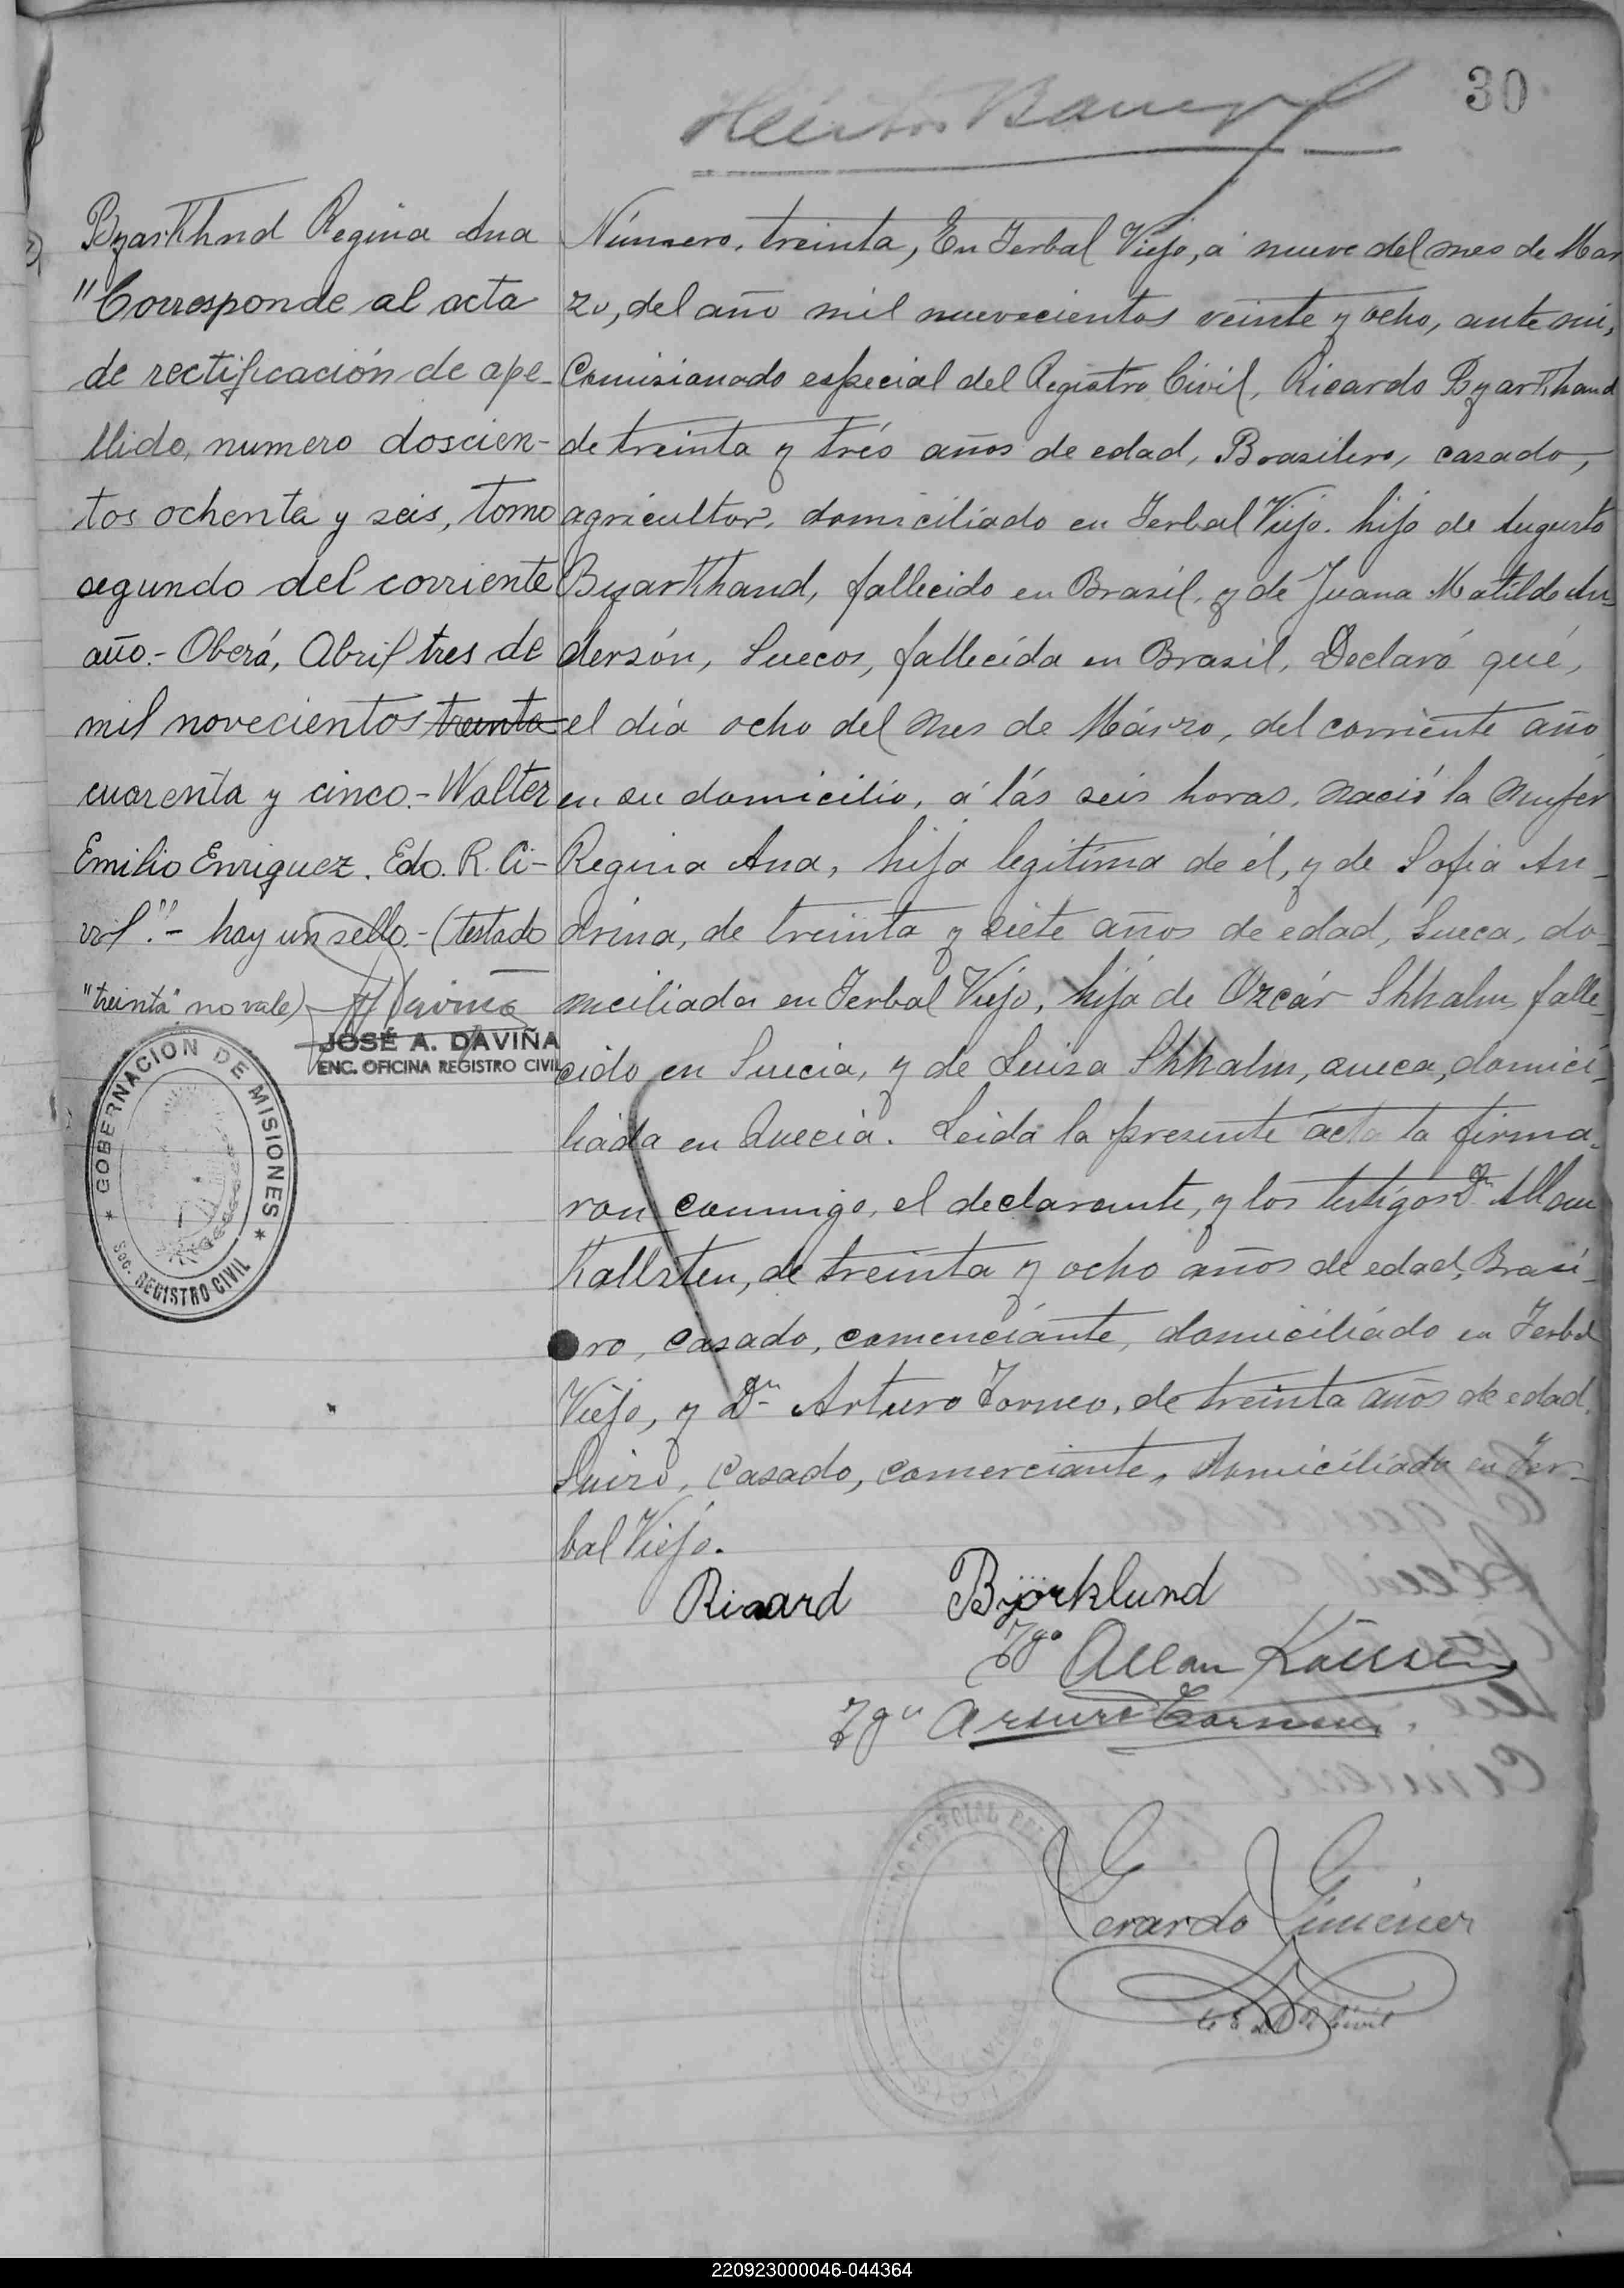 30
Byarkhnd Regina Ana
"Corresponde al acta
de rectificación de ape-
llido, numero doscien-
tos ochenta y seis, tomo
segundo del corriente
año.- Oberá, Abril tres de
mil novecientos treinta
cuarenta y cinco.- Walter
Emilio Enriquez. Edo. R. Ci-
vil".- hay un sello.- (testado
"treinta" no vale)
JOSÉ A. DAVIÑA
ENC. OFICINA REGISTRO CIVIL
GOBERNACION DE MISIONES
Sec. REGISTRO CIVIL
Número, treinta, En Yerbal Viejo, á nueve del mes de Mar
zo, del año mil nuevecientos veinte y ocho, ante mi,
Comisionado especial del Registro Civil, Ricardo Byarkhand
de treinta y trés años de edad, Brasilero, casado,
agricultor, domiciliado en Yerbal Viejo. hijo de Augusto
Byarkhand, fallecido en Brasil, y de Juana Matilde An-
dersón, Suecos, fallecida en Brasil, Declaró qué,
el día ocho del mes de Márzo, del corriente año
en su domicilio, á lás seis horas, nació la mujer
Regina Ana, hija legitima de él, y de Sofia An-
drina, de treinta y siete años de edad, Sueca, do-
miciliada en Yerbal Viejo, hija de Ozcár Shhalm, falle-
cido en Suecia, y de Luisa Shhalm, sueca, domici-
liada en Suecia. Leida la presente acta la firma-
ron conmigo, el declarante, y los testigos Dn Allan
Kallsten, de treinta y ocho años de edad, Brasi-
ro, casado, comenciánte, domiciliádo en Yerbal
Viejo, y Dn Arturo Torneo, de treinta años de edad,
Suizo, Casado, comerciante, domiciliado en Yer-
bal Viejo.
Ricard Björklund
Tgo Allan Källsten
Tgo Arturo
Gerardo Gimenez
220923000046-044364